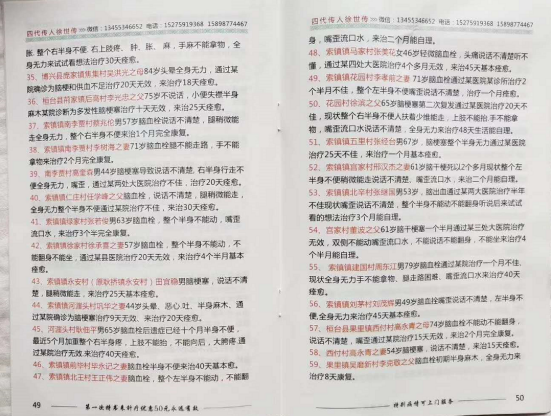 四代传人徐世传>>微信：13455346652 电话：15275919368 15898774467
胀,整个右半身不便,右上肢疼、肿、胀、麻,手麻不能拿物,全
身无力来试试看想法治疗30天痊愈。
35、博兴县庞家镇焦集村吴洪光之母84岁头晕全身无力，通过某
院确诊为脑梗和供血不足治疗20天无效，来治疗18天痊愈。
36、桓台县荷家镇后商村李光忠之父75岁不说话，小便失禁半身
麻木某院诊断为多发性脑梗塞治疗十天无效，来治疗25天痊愈。
37、索镇镇南李贾村蔡兆伦男57岁脑血栓说话不清楚，腿稍微能
走全身无力，整个右半身不便来治1个月完全康复。
38、索镇镇南李贾村李树海之妻71岁脑血栓腿不能走路，手不能
拿物来治疗2个月完全康复。
39、南李贾村高奎森男44岁脑梗塞导致说话不清楚,右半身行走不
便全身无力，嘴歪，通过某两处大医院治疗不佳，治疗20天痊愈。
40、索镇镇仁庄村任学峰之父脑血栓，说话不清楚，腿稍微能走，
全身无力整个半身不便通过某院治疗不佳，来治30天痊愈。
41、索镇镇徐家村张若俊男63岁脑血栓，整个半身不能动，嘴歪，
流口水，来治疗3个半完全康复。
42、索镇镇徐家村徐承喜之妻57岁脑血栓，整个半身不能动，不
能翻身不能坐，通过某县医院治疗20天无效，来治疗4个半月基本
痊愈。
43、索镇镇永安村（原耿桥镇永安村）田宜稳男脑梗塞，说话不清
楚，腿稍微能走，来治疗25天基本痊愈。
44、索镇镇河涯头村巩华之妻44岁头晕、恶心.吐、半身麻木，通
过某院确诊为脑梗塞治疗9天无效，来治疗20天痊愈。
45、河涯头村耿佃平男65岁脑血栓后遗症已经十个月半身不便，
最近5个月加重整个右半身疼，上肢不能抬，不能向后，大胯疼.通
过某院治疗无效.来治疗40天痊愈。
46、索镇镇前毕村毕永记之妻脑血栓半身不便来治40天基本痊愈。
47、索镇镇北王村王正伟之妻脑血栓，整个左半身不能动，不能翻
49
第一次特患来针疗优惠50元永远有效
四代传人徐世传>>微信：13455346652 电话：15275919368 15898774467
身，嘴歪流口水，来治二个月能自理。
48、索镇镇马家村张美花女46岁轻微脑血栓，头痛说话不清楚听不
懂，通过某四处大医院治疗4个多月无效，来治45天基本痊愈。
49、索镇镇花园村李孝前之妻 71岁脑血栓通过某医院某诊所治疗2
个半月不佳，整个左半身不便嘴歪说话不清楚，治疗一个月痊愈。
50、花园村徐滨之父65岁脑梗塞第二次复发通过某医院治疗20天不
佳，现状整个右半身不便人扶着少维能走，上肢不能抬.手不能拿
物，嘴歪流口水说话不清楚，全身无力来治疗48天生活能自理。
51、索镇镇五里村张经台男67岁，脑梗塞整个半身无力通过某医院
治疗25天不佳，来治疗一个月基本痊愈。
52、索镇镇宫家村邢汉杰之妻61岁脑干梗死以2个多月现状整个左
半身不便稍微能走说话不清楚、嘴歪，来治疗一个月基本痊愈。
53、索镇镇北辛村张继国男53岁，脑出血通过某两大医院治疗半年
不佳现状嘴歪说话不清楚，整个半身不能动不能翻身听说后来试试
看的想法治疗3个月能自理。
54、宫家村董波之父61岁脑干梗塞一个半月治疗通过某三处大医院治疗
无效，双侧不能动嘴歪流口水，不能说话不能翻身，不能坐来治疗4个
半月能自理。
55、索镇镇建国村周东江男79岁脑血栓通过某院治疗一个月不佳，
现状全身无力手不能拿物，腿走路困难，嘴歪流口水来治疗40天
痊愈。
56、索镇镇刘茅村刘茂辉男49岁脑血栓嘴歪说话不清楚，左半身不
便,全身无力来治疗45天基本痊愈。
57、桓台县果里镇西付村高永青之母74岁脑血栓不能动不能翻身，
说话不清楚，嘴歪通过某医院治疗15天无效，来治疗2个月完全康复。
58、西付村高永青之妻54岁脑血栓来治疗15天基本痊愈。
59、果里镇吴磨新村李克敬之父脑血栓初期半身麻木，全身无力来
治疗8天康复。
特别病情可上门服务
50